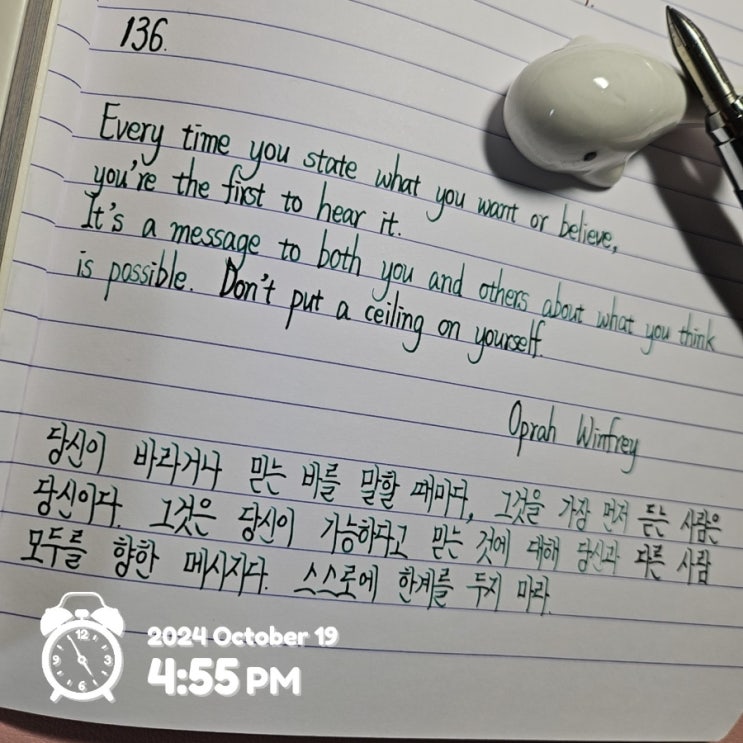 136.
Every time you state what you want or believe,
you're the first to hear it.
It's a message to both you and others about what you think
is possible. Don't put a ceiling on yourself.
Oprah Winfrey
당신이 바라거나 믿는 바를 말할 때마다, 그것을 가장 먼저 듣는 사람은
당신이다. 그것은 당신이 가능하다고 믿는 것에 대해 당신과 다른 사람
모두를 향한 메시지다. 스스로에 한계를 두지 마라.
12
3
6
9
2024 October 19
4:55 PM